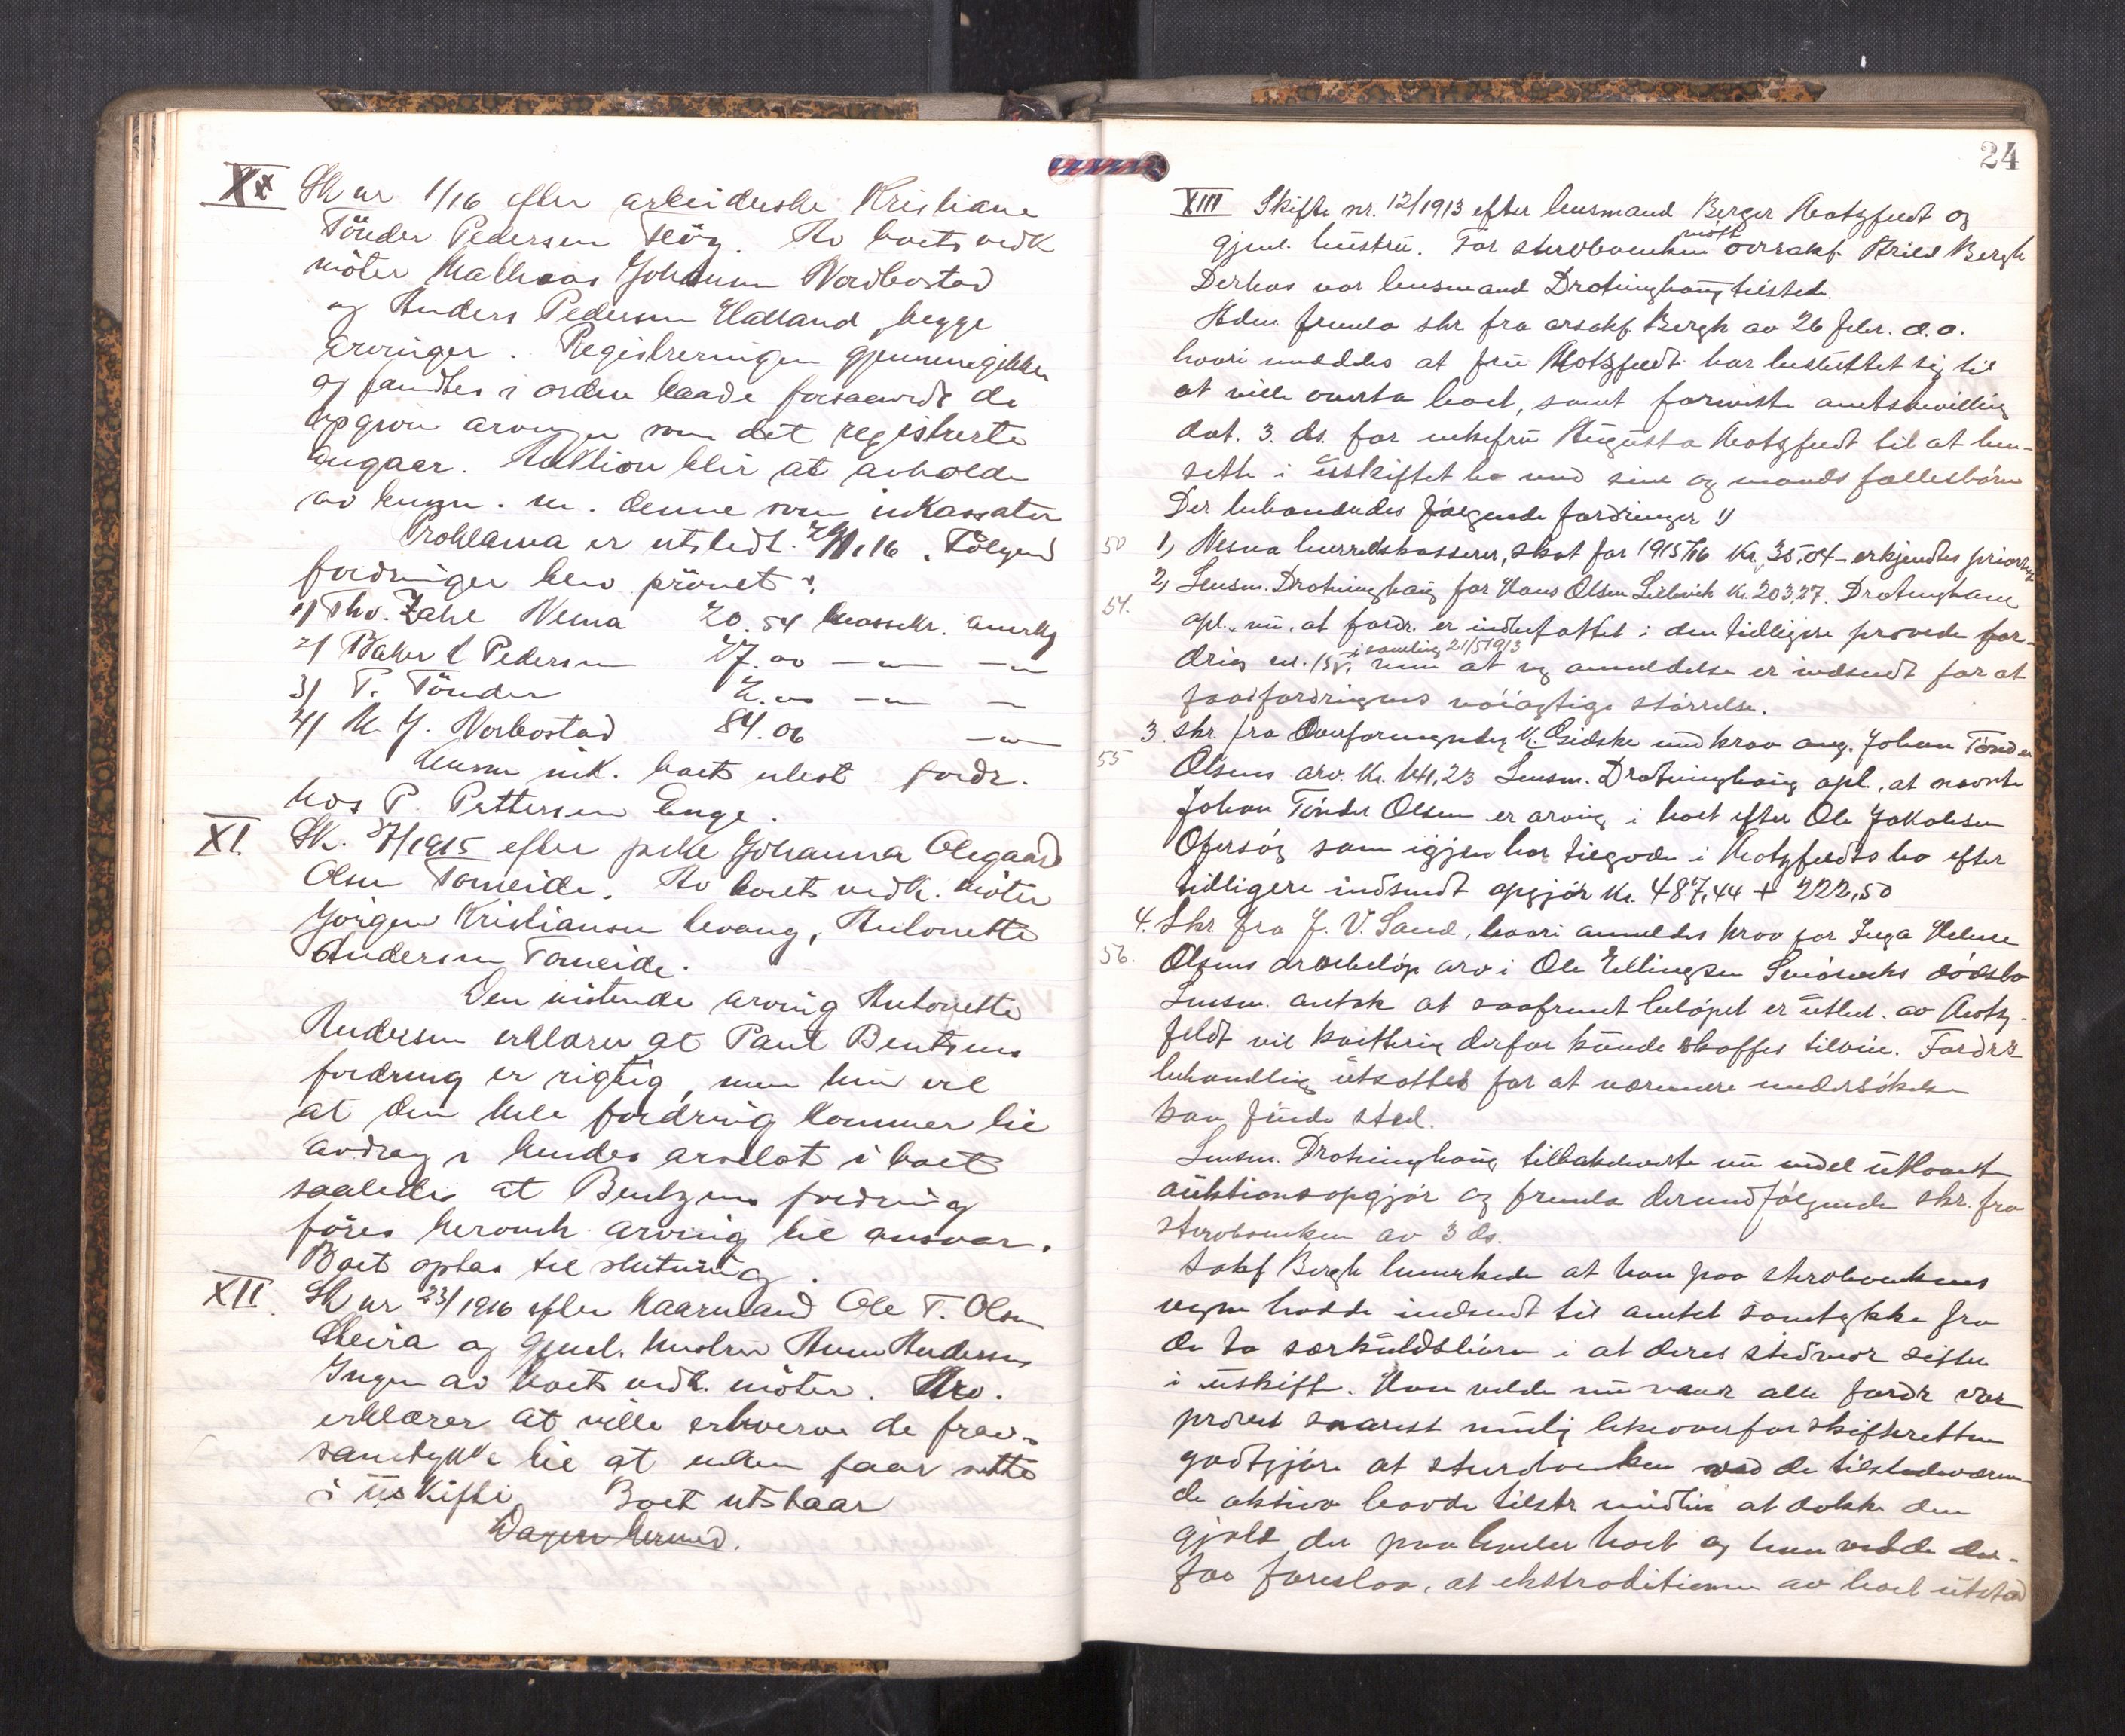 X
Sk nr 1/16 efter arbeiderske Kristiane
Tönder Pedersen Hög. Av boets vedk
möter Mathias Johansen Nordbostad
og Anders Pedersen Halland, begge
arvinger. Registreringen gjennemgikkes
og fandtes i orden baade forsaavidt de
opgivne arvinger som det registrerte
angaar. Auktion blir at avholde
av lensm. m. denne som inkassator
Proklama er utstedt. 24/1.16. Følgende
fordringer blev prövet:
1) Thv. Zahl Nesna 20.54 anerkj
2) Baker L Pedersen 27.00 — „ — „
3) P. Tönder 2.00 — „ —
4) M. J. Norbostad 84.06 — „ —
Lensm ink. boets utest fordr.
hos P. Pettersen Enge.
XI. Sk. 37/1915 efter pike Johanna Olegaard
Olsen Tomeide. Av boets vedk. möter
Jörgen Kristiansen Levang, Antonette
Andersen Tomeide.
Den mötende arving Antonette
Andersen erklærer at Paul Bentzens
fordring er rigtig, men hun vil
at den hele fordring kommer til
avdrag i hendes arvelot i boet
saaledes at Bentzens fordring
föres nævnte arving til ansvar.
Boet optas til slutning.
XII. Sk nr 23/1916 efter Gaarmand Ole T. Olsen
Skeira og gjenl. hustru Anne Andersen
Ingen av boets vedk. möter. Arv.
erklærer at ville erhverve de frav.
samtykke til at enken faar sitte
i uskifte. Boet utstaar
Dagen hævned.
24
XIII Skifte nr. 12/1913 efter lensmand Berger Hotzfeldt og
gjenl. hustru. For sterbboenken mött overrsakf. Kield Bergh
Derhos var lensmand Drotninghaug tilstede.
Adm. fremla skr. fra orsakf. Bergh av 26 febr. d.a.
hvori meddeles at frue Hotzfeldt har besluttet sig til
at ville overta boet, samt forviste amtsbevilling
dat. 3. ds. for enkefru Augusta Hotzfeldt til at hen-
sitte i uskiftet bo med sine og mands fællesbörn
Der behandledes følgende fordringer:
50 1) Nesna herredskasserer, skat for 1915/16 Kr. 35,04 – erkjendtes prioritet
54. 2) Lensm. Drotninghaug for Hans Olsen Kr. 203,27. Drotninghaug
opl. nu, at fordr. er indbefattet i den tidligere prövede for-
dring nr. 15, i samling 21/5 1913 men at ny anmeldelse er indsendt for at
faa fordringens nöiagtige störrelse.
55 3. Skr. fra Overformynder K. Sidske med krav ang. Johan Tönder
Olsens arv. Kr. 141,23 Lensm. Drotninghaug opl., at nævnte
Johan Tönder Olsen er arving i boet efter Ole Jakobsen
Ofersøy som igjen har tilgode i Hotzfeldts bo efter
tidligere indsendt opgjör Kr. 487,44 + 222,50
56. 4. Skr fra J. V. Sand, hvori anmeldes krav for Inga Helene
Olsens arvebelöp arv i Ole Ellingsen dödsbo
Lensm. antok at saafremt belöpet er utbet. av Hotz-
feldt vil kvittering derfor kunde skaffes tilveie. Fordr's
behandling utsattes for at nærmere undersökelse
kan finde sted.
Lensm. Drotninghaug tilbakeleverte nu endel utlaant
auktionsopgjör og fremla derimedfölgende skr. fra
sterbboenken av 3 ds.
Sakf Bergh bemerkede at han paa sterbboenkens
vegne hadde indsendt til amtet samtykke fra
de to særkuldsbörn i at deres stedmor sitter
i uskifte. Han vilde nu naar alle fordr var
prövet snarest mulig likeoverfor skifteretten
godtgjöre at sterbboenken ved de tilstedeværen-
de aktiva havde tilstr. midler at dække den
gjæld der paahviler boet og han vilde der-
for foreslaa, at ekstraditionen av boet utstod